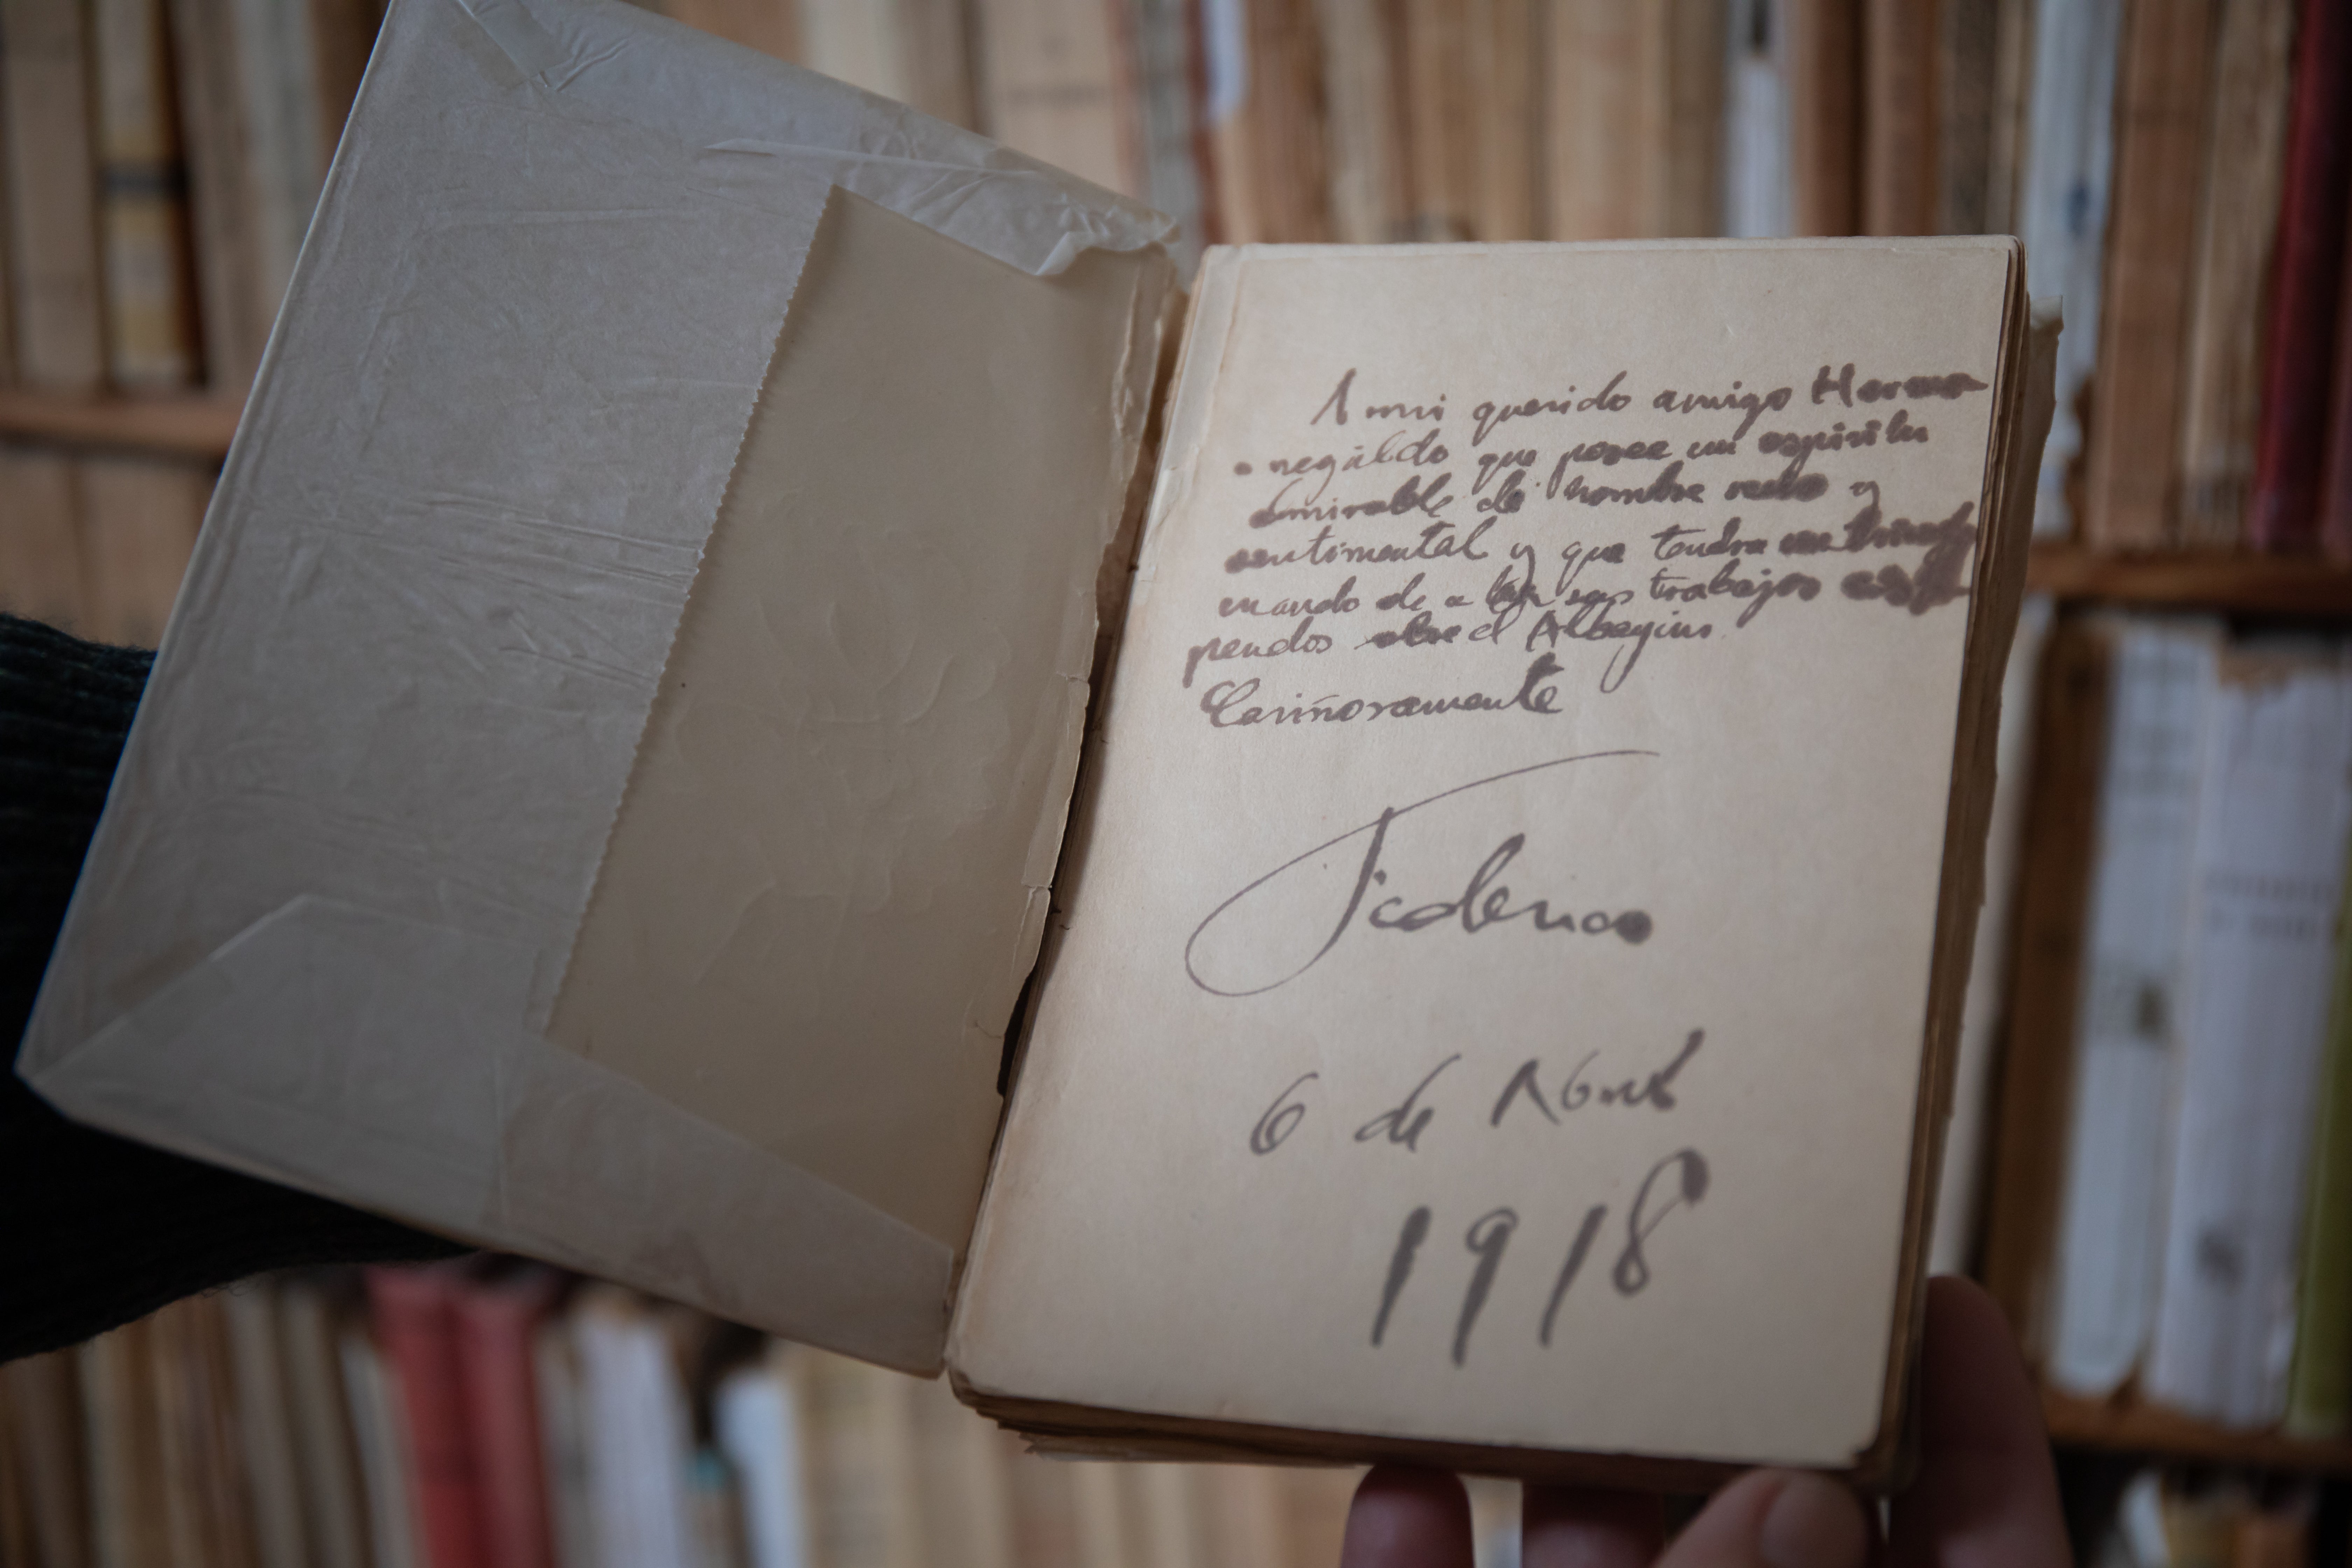 A mi querido amigo Herme
negildo que posee un espiritu
admirable de hombre recto y
sentimental y que tendra un triunfo
cuando de a luz sus trabajos estu
pendos sobre el Albayzin.
Cariñosamente
Federico
6 de Abril
1918